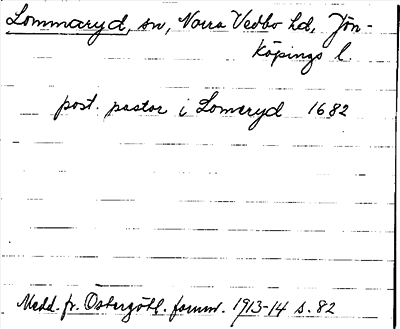 Lommaryd, sn, Norra Vedbo hd, Jön-
köpings l.
post. pastor i Lomeryd 1682
Medd. fr. Östergötl. fornm. 1913-14 s. 82